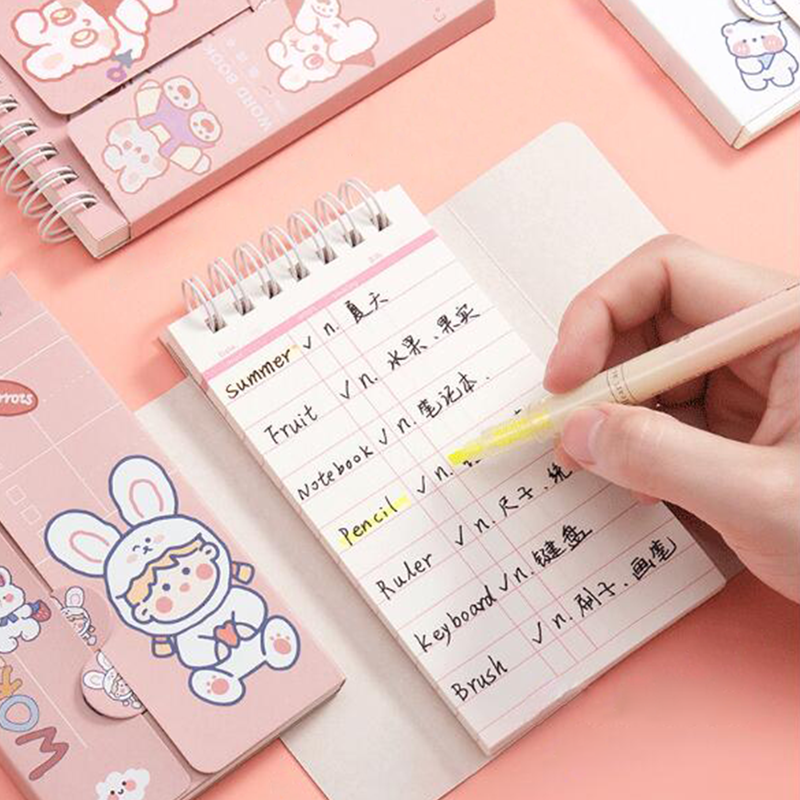 WORD BOOK
Summer ✓ n. 夏天
Fruit ✓ n. 水果、果实
Notebook ✓ n. 笔记本.
Pencil ✓ n.
Ruler ✓ n. 尺子、
Keyboard ✓ n. 键盘
Brush ✓ n. 刷子、画笔